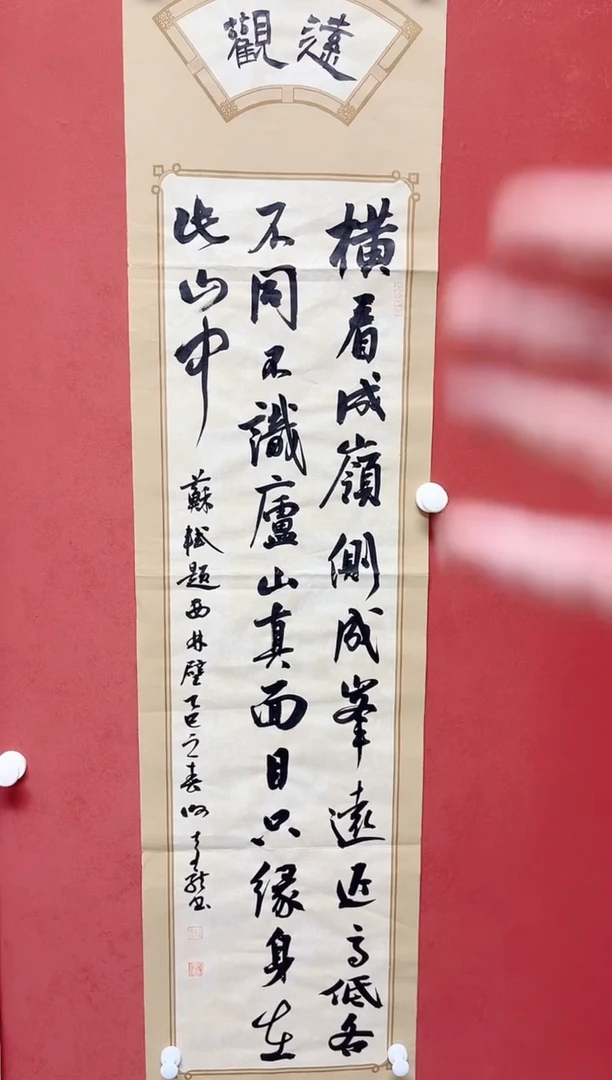 遠觀
橫看成嶺側成峯遠近高低各
不同不識廬山真面目只緣身在
此山中
蘇軾題西林壁乙巳之春